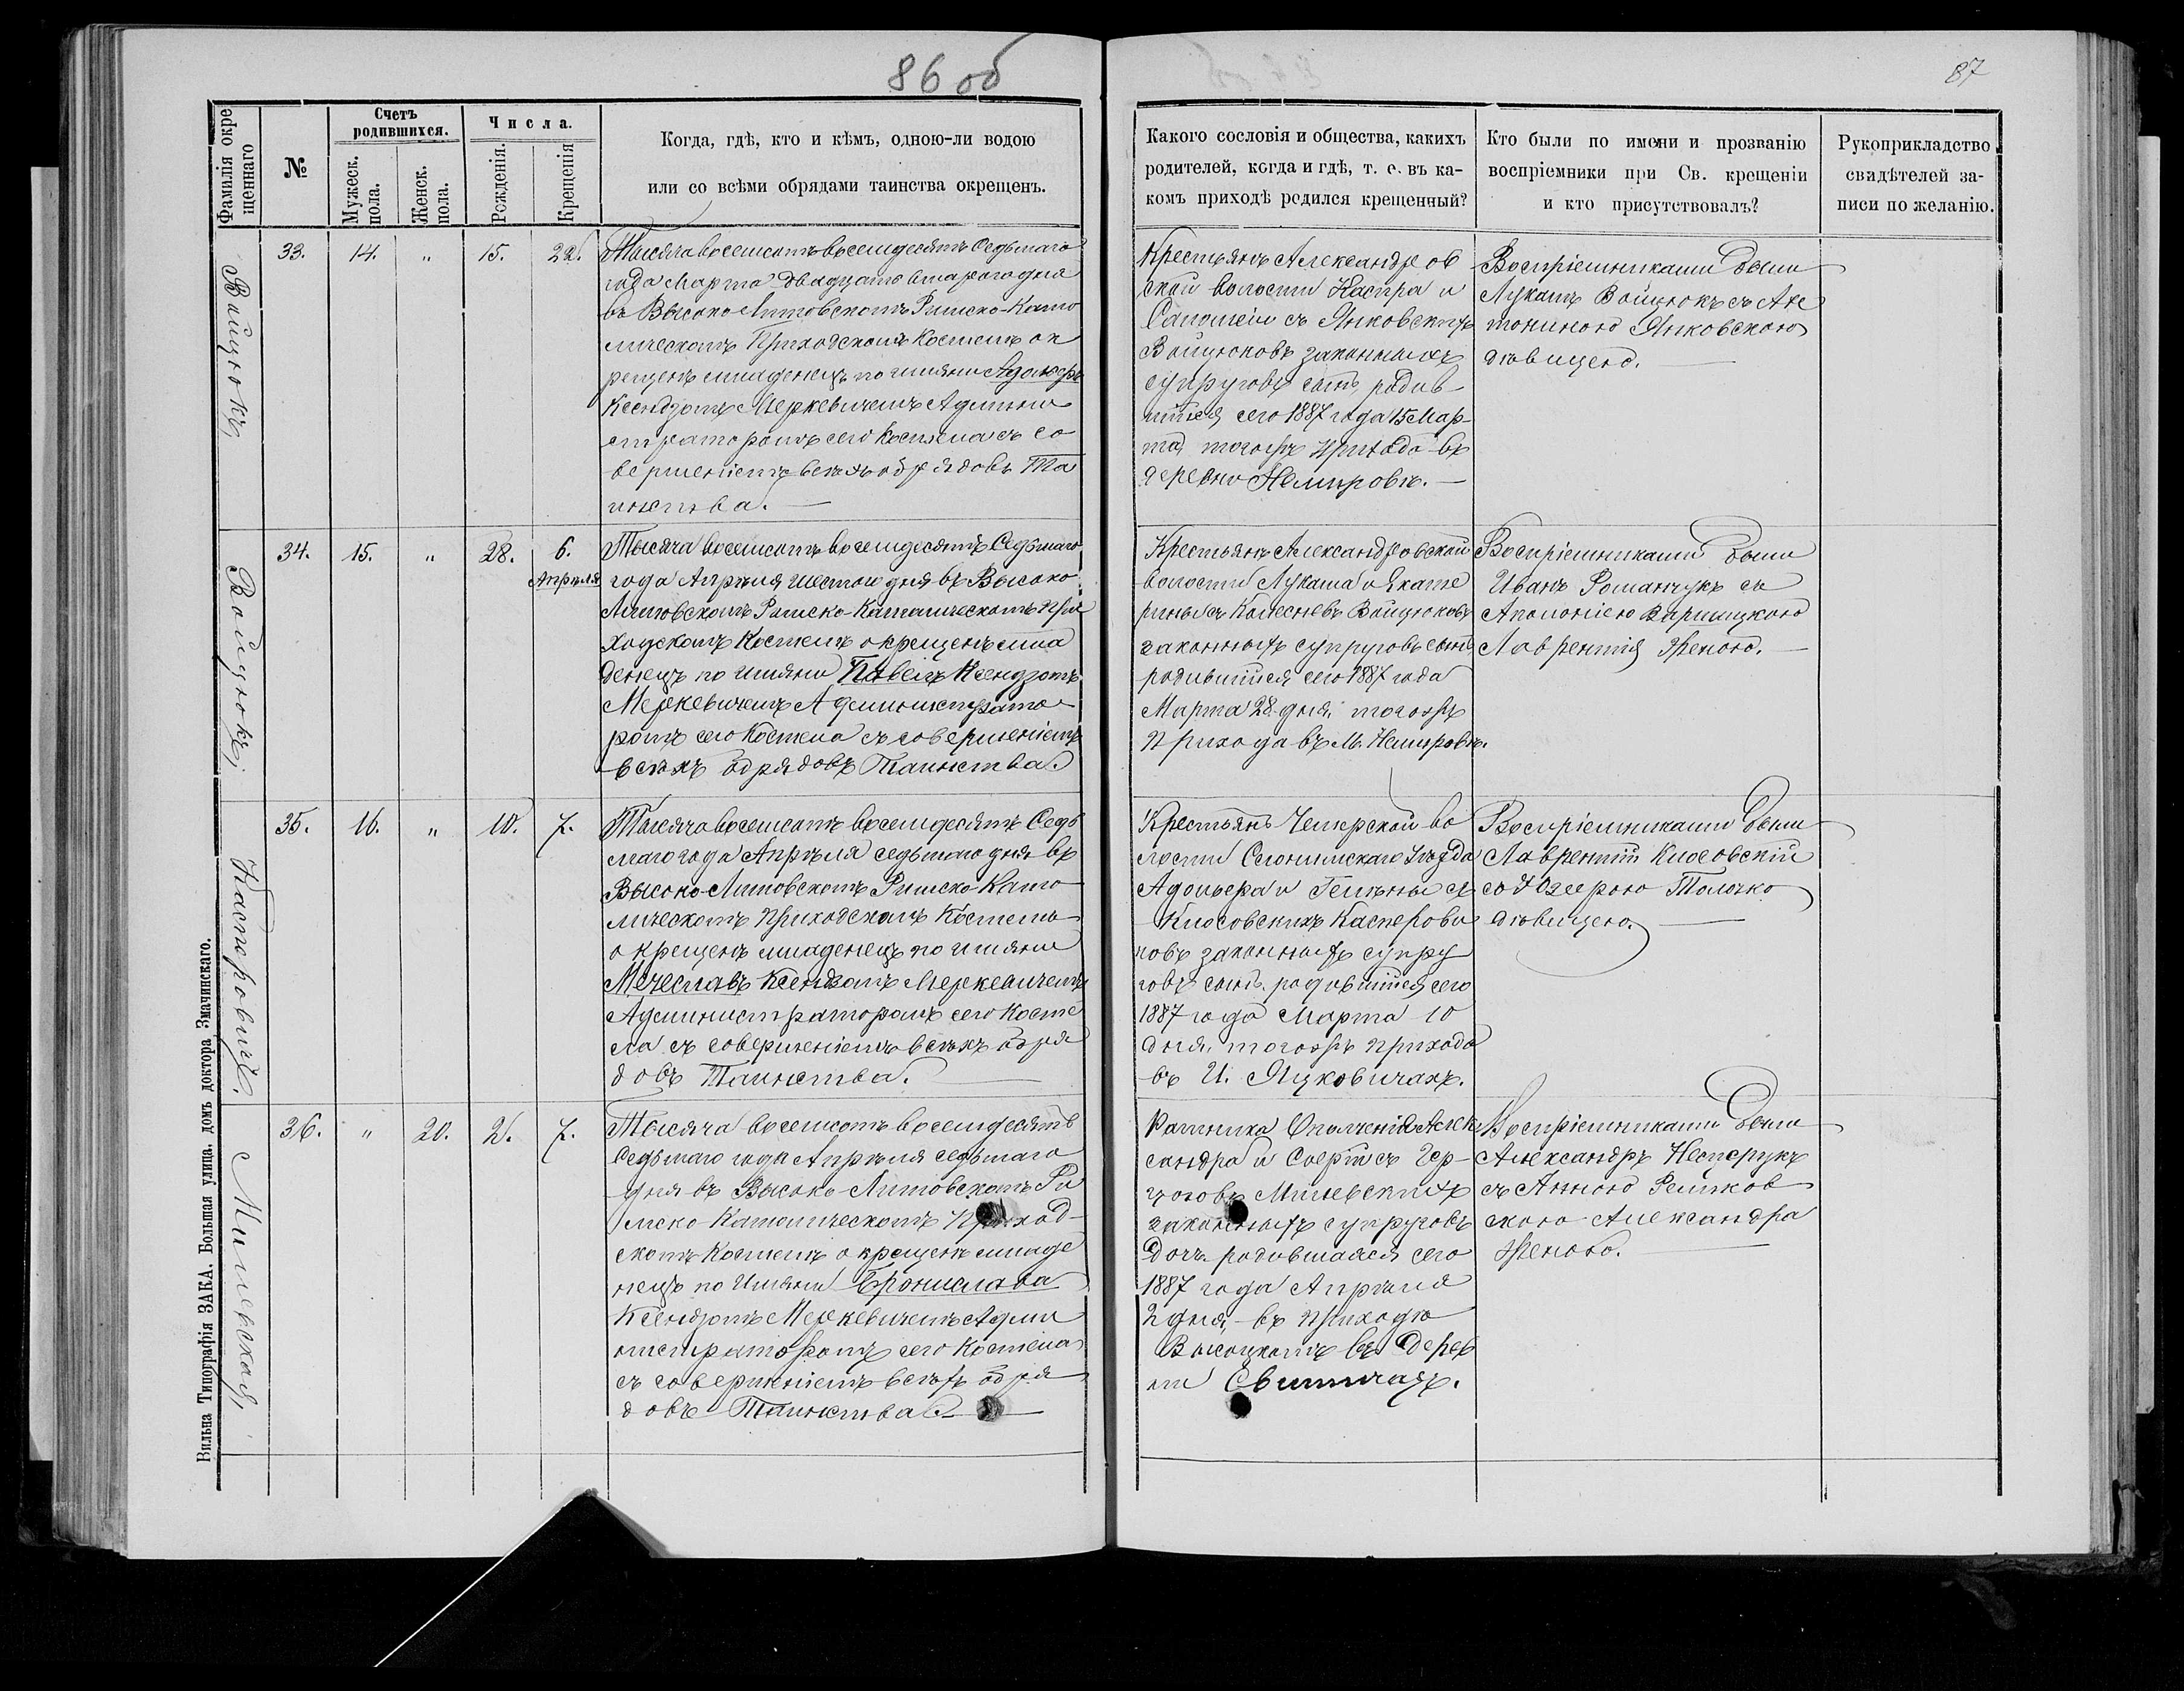 86 об
87
Фамилія окре
щеннаго
№
Счетъ
родившихся.
Мужеск.
пола.
Женск.
пола.
Числа.
Рожденія.
Крещенія
Когда, гдѣ, кто и кѣмъ, одною-ли водою
или со всѣми обрядами таинства окрещенъ.
Какого сословія и общества, какихъ
родителей, когда и гдѣ, т. е. въ ка-
комъ приходѣ родился крещенный?
Кто были по имени и прозванію
воспріемники при Св. крещеніи
и кто присутствовалъ?
Рукоприкладство
свидѣтелей за-
писи по желанію.
Войцюкъ,
33. 14. „ 15. 22.
Тысяча восемсотъ восемдесятъ Седьмаго
года Марта двадцать втараго дня
въ Высоко Литовскомъ Римско-Като
лическомъ Приходскомъ Костелѣ ок
рещенъ младенецъ по имяни Адольфъ
Ксендзомъ Меркевичемъ Админи
страторомъ сего Костела съ со
вершеніемъ всѣхъ обрядовъ Та
инства.
Крестьянъ Александров
ской волости Каспра и
съ Янковскихъ
Войцюковъ законныхъ
супруговъ сынъ, родив
шійся сего 1887 года 15 Мар-
та, тогожъ прихода въ
деревни Немировъ.
Воспріемниками были
Лукашъ Войцюкъ съ Ан
тониною Янковскою
дѣвицею.
Войцюкъ,
34. 15. „ 28. 6.
Апрѣля
Тысяча восемсотъ восемдесятъ Седьмаго
года Апрѣля шестого дня въ Высоко
Литовскомъ Римско-Католическомъ При
ходскомъ Костелѣ окрещенъ мла
денецъ по имяни Павелъ Ксендзомъ
Меркевичемъ Администрато
ромъ сего Костела съ совершеніемъ
всѣхъ обрядовъ Таинства.
Крестьянъ Александровской
волости Лукаша и Екате
рины съ Колесневъ Войцюковъ
законныхъ супруговъ сынъ
родившійся сего 1887 года
Марта 28 дня, тогожъ
прихода въ М. Немировъ.
Воспріемниками были
Иванъ Романчукъ съ
Аполоніею Варшицкою
Лаврентія Женою.
Касперовичъ.
35. 16. „ 10. 7.
Тысяча восемсотъ восемдесятъ Седь
маго года Апрѣля седьмаго дня въ
Высоко-Литовскомъ Римско-Като
лическомъ Приходскомъ Костелѣ
окрещенъ младенецъ по имяни
Мечеславъ Ксендзомъ Меркевичемъ
Администраторомъ сего Косте
ла съ совершеніемъ всѣхъ обря
довъ Таинства.
Крестьянъ Чемерской во
лости Слонимскаго Уѣзда
Адольфа и Гелены съ
Клюсовскихъ Касперови
човъ законныхъ супру
говъ сынъ, родившійся сего
1887 года Марта 10
дня, тогожъ прихода
въ И. Яцковичахъ.
Воспріемниками были
Лаврентій Клюсовскій
со Юзефою Толочко
дѣвицею.
Милевская,
36. „ 20. 2. 7.
Тысяча восемсотъ восемдесятъ
Седьмаго года Апрѣля седьмаго
дня въ Высоко-Литовскомъ Ри
мско-Католическомъ Приход-
скомъ Костелѣ окрещенъ младе
нецъ по Имяни Брониславa
Ксендзомъ Меркевичемъ Адми
нистраторомъ сего Костела
съ совершеніемъ всѣхъ обря
довъ Таинства.
Ратника Ополченія Алек
сандра и Софіи съ Гер-
цоговъ Милевскихъ
законныхъ супруговъ
дочь родившаяся сего
1887 года Апрѣля
2 дня, въ приходѣ
Высоцкомъ въ дерев
ни
Воспріемниками были
Александръ Нестерукъ
съ Анною Рейков
скою Александра
Женою.
Вильна Типографія ЗАКА. Большая улица, домъ доктора Змачинскаго.